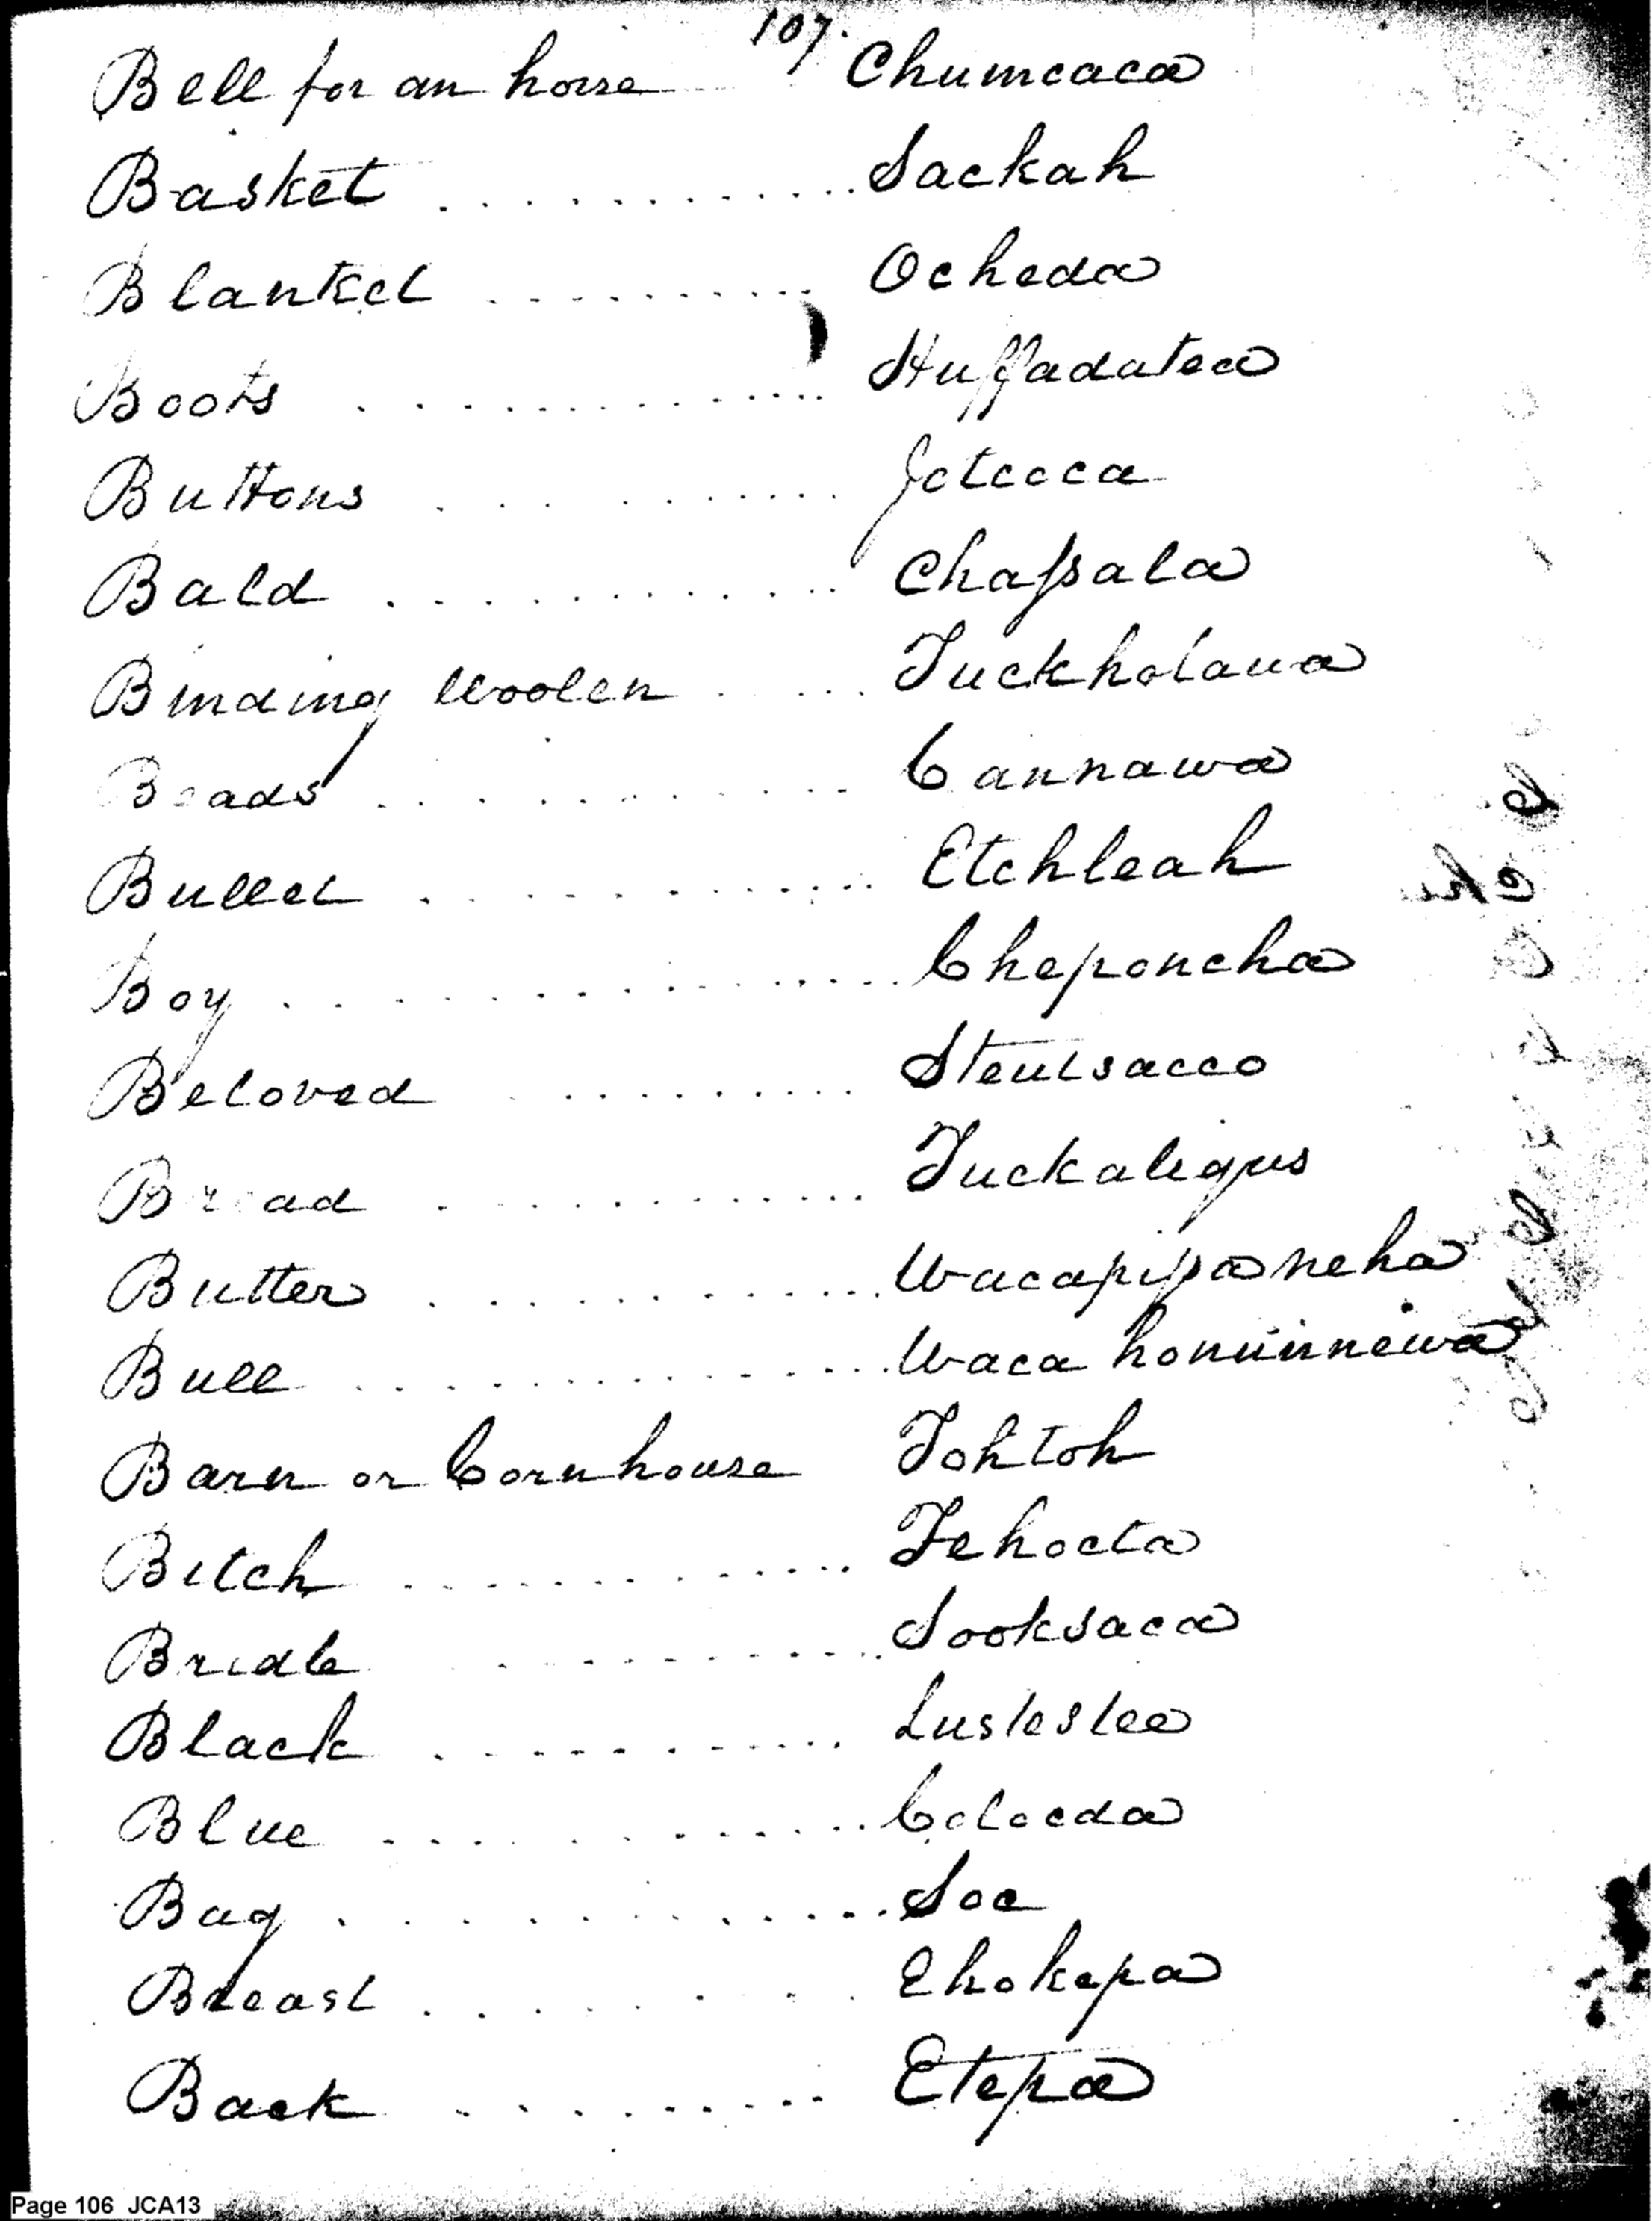 107.
Bell for an horse Chumcaca
Basket ............ Sackah
Blanket .......... Ocheda
Boots ............. Huffadatea
Buttons .......... Jotcoca
Bald ............ Chaſsala
Binding Woolen ..... Tuckholaua
Beads ............ Cannawa
Bullet ............ Etchleah
Boy ................ Cheponcha
Beloved .......... Steutsacco
Bread ............ Tuckaligus
Butter ............ Wacapipaneha
Bull ............. Waca honunnewa
Barn or Cornhouse Tohtoh
Bitch ............. Fehocta
Bridle ........... Sooksaca
Black ........... Lustestee
Blue ............ Coloeda
Bag ............. Soc
Breast ......... Ehokepa
Back .......... Etepa
Page 106 JCA13